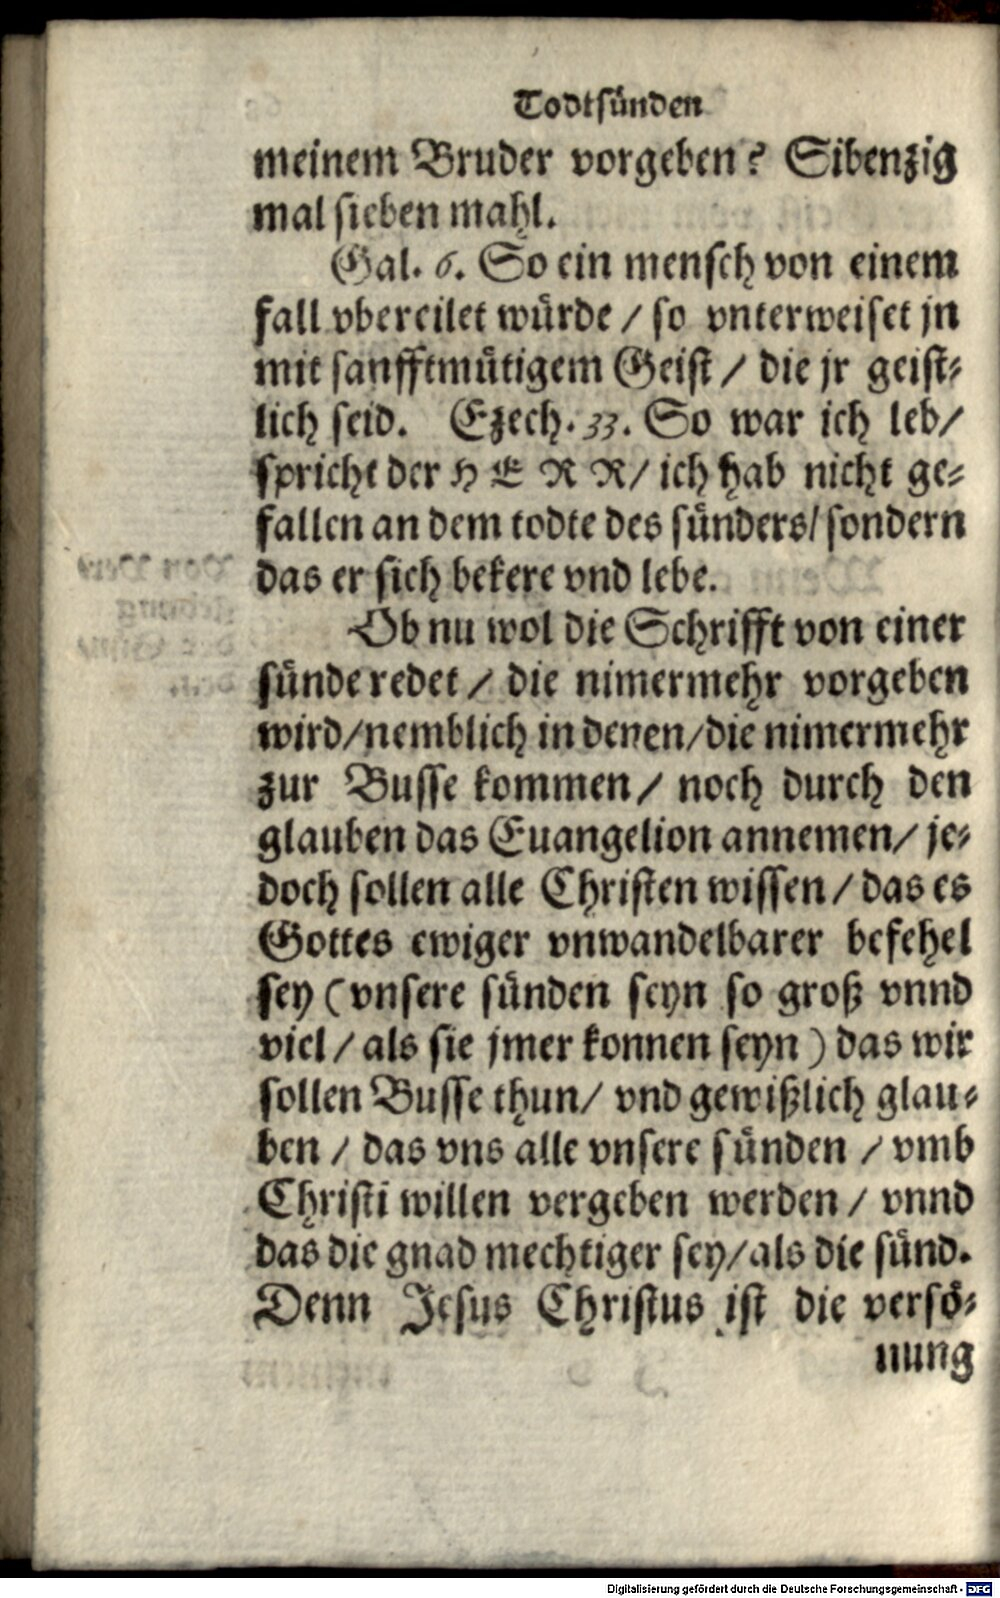 Todtsünden
meinem Bruder vorgeben? Sibenzig
mal sieben mahl.
Gal. 6. So ein mensch von einem
fall vbereilet würde / so vnterweiset jn
mit sanfftmütigem Geist / die jr geist-
lich seid. Ezech. 33. So war ich leb/
spricht der HERR/ ich hab nicht ge-
fallen an dem todte des sünders/ sondern
das er sich bekere vnd lebe.
Ob nu wol die Schrifft von einer
sünde redet / die nimermehr vorgeben
wird/nemblich in denen/die nimermehr
zur Busse kommen / noch durch den
glauben das Euangelion annemen/ je-
doch sollen alle Christen wissen / das es
Gottes ewiger vnwandelbarer befehel
sey (vnsere sünden seyn so groß vnnd
viel / als sie jmer konnen seyn) das wir
sollen Busse thun/ vnd gewißlich glau-
ben / das vns alle vnsere sünden / vmb
Christi willen vergeben werden / vnnd
das die gnad mechtiger sey/als die sünd.
Denn Jesus Christus ist die versö-
nung
Digitalisierung gefördert durch die Deutsche Forschungsgemeinschaft - DFG